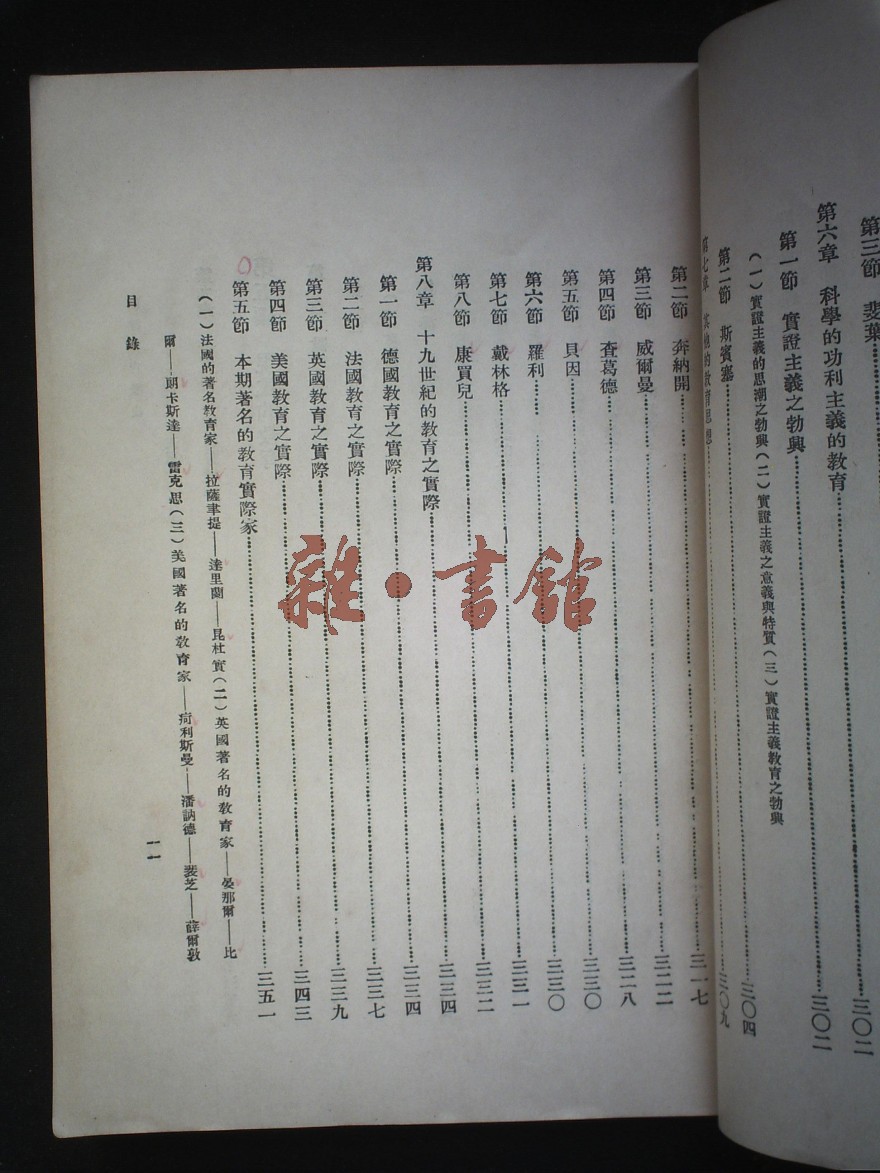 第三節 斐葉……三〇二
第六章 科學的功利主義的教育……三〇二
第一節 實證主義之勃興……三〇四
(一)實證主義的思潮之勃興(二)實證主義之意義與特質(三)實證主義教育之勃興
第二節 斯賓塞……三〇九
第七章 其他的教育思想
第二節 奔納開……三一七
第三節 威爾曼……三二二
第四節 查葛德……三二八
第五節 貝因……三三〇
第六節 羅利……三三〇
第七節 戴林格……三三一
第八節 康買兒……三三二
第八章 十九世紀的教育之實際……三三四
第一節 德國教育之實際……三三四
第二節 法國教育之實際……三三七
第三節 英國教育之實際……三三九
第四節 美國教育之實際……三四三
第五節 本期著名的教育實際家……三五一
(一)法國的著名教育家——拉薩聿提——達里蘭——昆杜實(二)英國著名的教育家——晏那爾——比
爾——朗卡斯達——雷克思(三)美國著名的教育家——荷利斯曼——潘訥德——裴芝——薛爾敦
目錄
一一
雜·書館